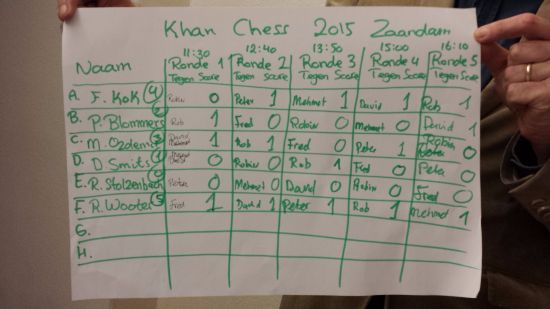 Khan Chess 2015 Zaandam
11:30 12:40 13:50 15:00 16:10
Naam Ronde 1 Ronde 2 Ronde 3 Ronde 4 Ronde 5
Tegen Score Tegen Score Tegen Score Tegen Score Tegen Score
A. F. Kok 4 Robin 0 Peter 1 Mehmet 1 David 1 Rob 1
B. P. Blommers Rob 1 Fred 0 Robin 0 Mehmet 0 David 1
C. M. Ozdemir David 1 Rob 1 Fred 0 Peter 1 Robin 0
D. D. Smits Robin 0 Rob 1 Fred 0 Peter 0
E. R. Stolzenbach Peter 0 Mehmet 0 David 0 Robin 0 Fred 0
F. R. Wooter 5 Fred 1 David 1 Peter 1 Rob 1 Mehmed 1
G.
H.